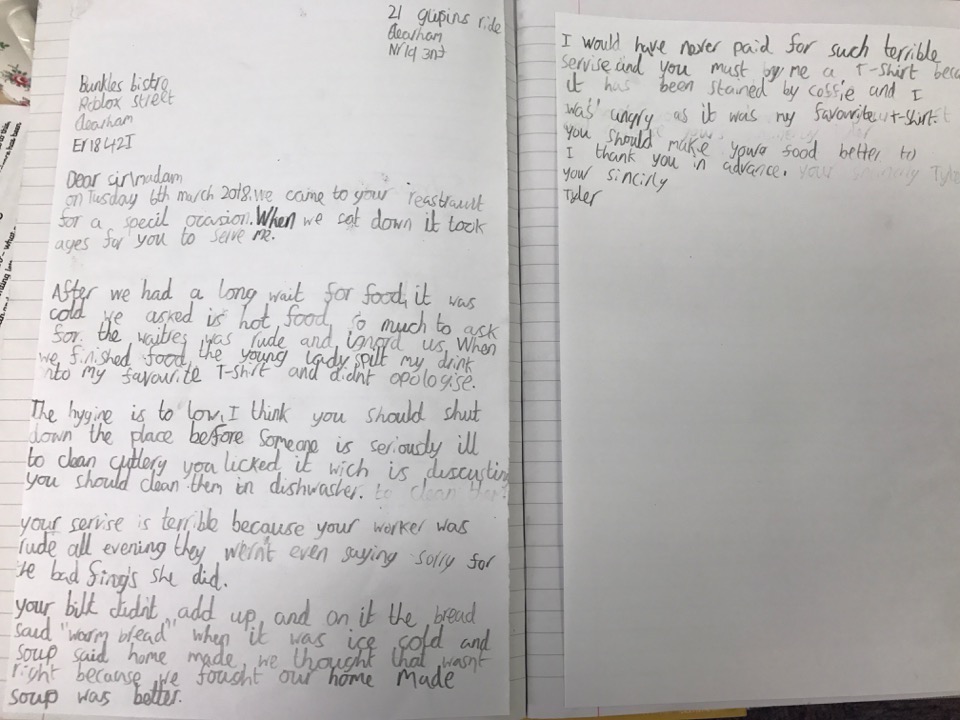 21 gupins ride
dearham
Nr19 3nt
Bunkles bistro
Roblox street
dearham
Er18 42I
Dear sir\madam
on Tuesday 6th march 2018. we came to your reastrault
for a speciol ocasion. When we sat down it took
ages for you to serve me.
After we had a long wait for food, it was
cold we asked is hot food so much to ask
for. the waitres was rude and ignord us. When
we finished food, the young lady spilt my drink
into my favourite T-shirt and didnt opologise.
The hygine is to low, I think you should shut
down the place before someone is seriously ill
to clean cutlery you licked it wich is discusting
you should clean them in dishwasher.
your servise is terrible because your worker was
rude all evening they wern't even saying sorry for
te bad fings she did.
your bill didn't add up, and on it the bread
said "worm bread" when it was ice cold and
soup said home made, we thought that wasnt
right because we fought our home Made
soup was better.
I would have never paid for such terrible
servise and you must by me a, T-shirt beca
it has been stained by coffie and I
was angry as it was my favourite t-shirt.
you should make youre food better to
I thank you in advance. your sincirly Tyle
your sincirly
Tyler